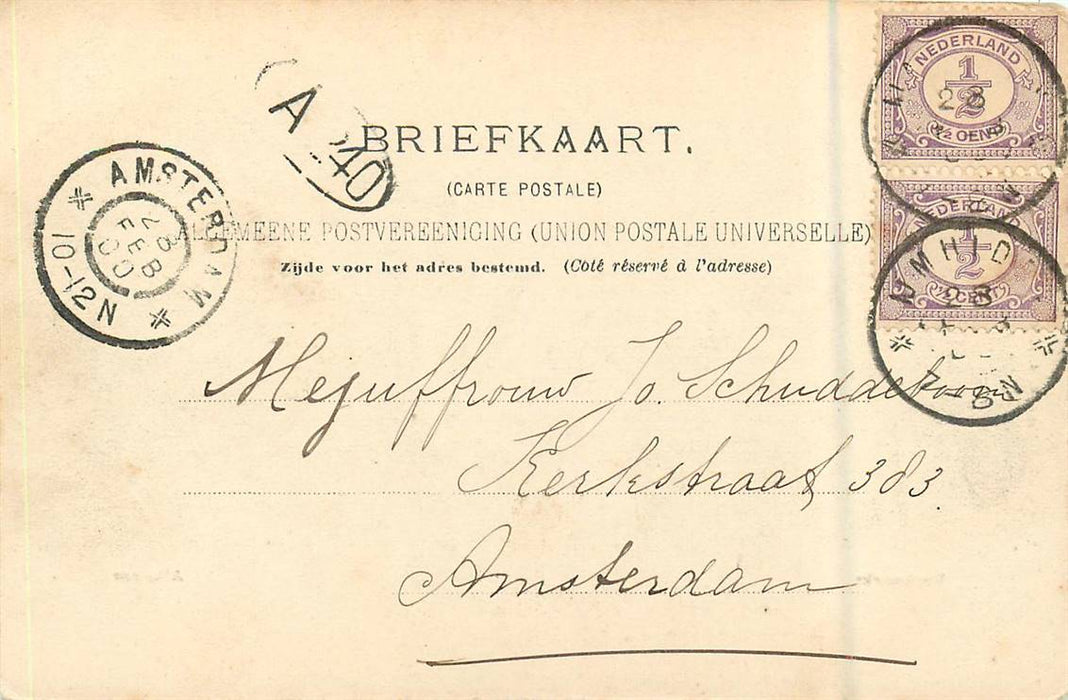 NEDERLAND
1/2
1/2 CENT
NEDERLAND
1/2
1/2 CENT
28
28
7-8N
A
40
AMSTERDAM
28
FEB
00
10-12N
BRIEFKAART.
(CARTE POSTALE)
ALGEMEENE POSTVEREENIGING (UNION POSTALE UNIVERSELLE)
Zijde voor het adres bestemd. (Coté réservé à l'adresse)
Mejuffrouw Jo. Schuddeboom
Kerkstraat 383
Amsterdam